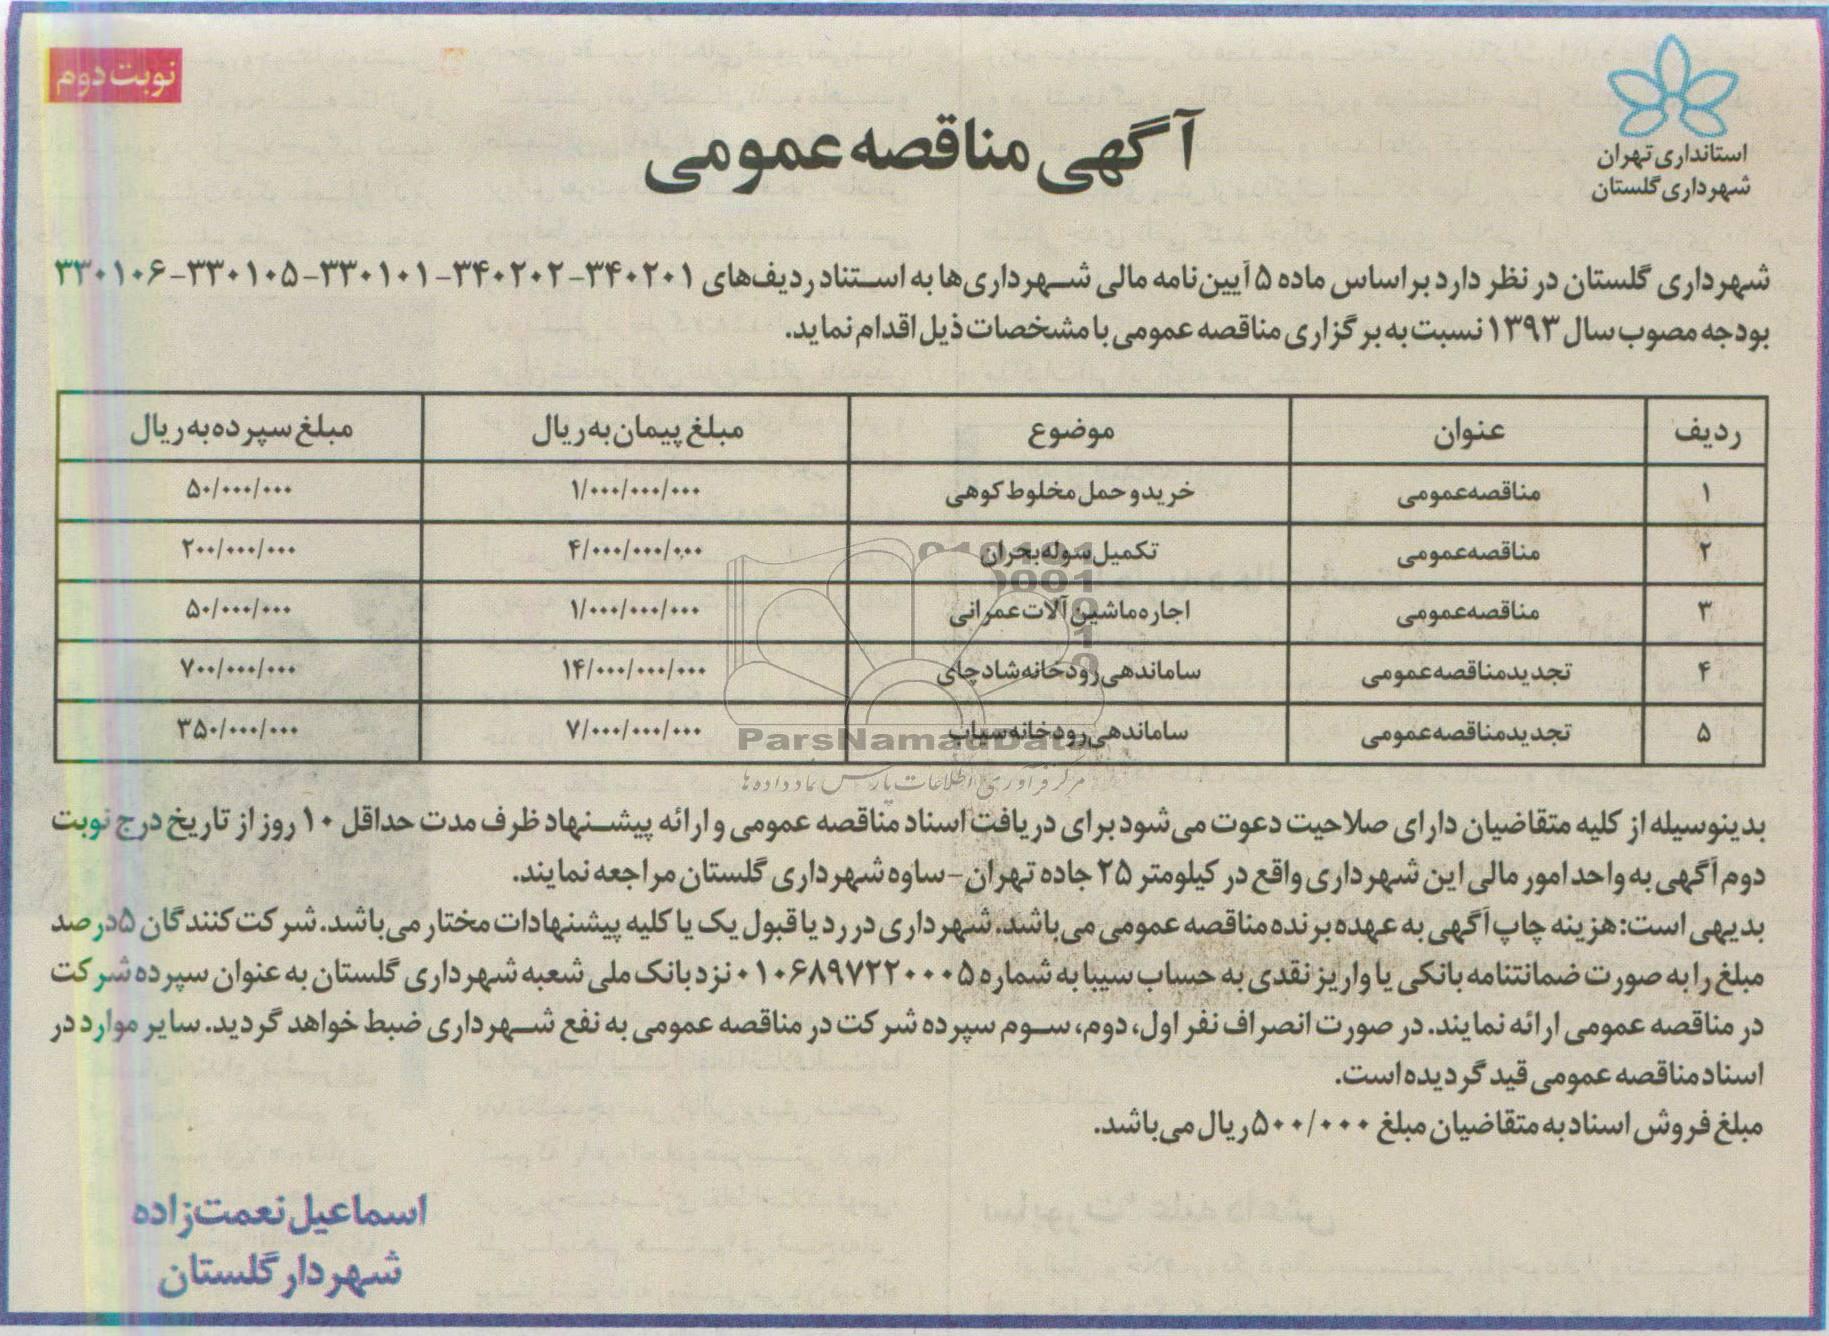 نوبت دوم
استانداری تهران
شهرداری گلستان
آگهی مناقصه عمومی
شهرداری گلستان در نظر دارد براساس ماده ۵ آیین‌نامه مالی شهرداری‌ها به استناد ردیف‌های ۳۴۰۲۰۱-۳۴۰۲۰۲-۳۳۰۱۰۱-۳۳۰۱۰۵-۳۳۰۱۰۶
بودجه مصوب سال ۱۳۹۳ نسبت به برگزاری مناقصه عمومی با مشخصات ذیل اقدام نماید.
ردیف عنوان موضوع مبلغ پیمان به ریال مبلغ سپرده به ریال
۱ مناقصه عمومی خرید و حمل مخلوط کوهی ۱/۰۰۰/۰۰۰/۰۰۰ ۵۰/۰۰۰/۰۰۰
۲ مناقصه عمومی تکمیل سوله بحران ۴/۰۰۰/۰۰۰/۰۰۰ ۲۰۰/۰۰۰/۰۰۰
۳ مناقصه عمومی اجاره ماشین آلات عمرانی ۱/۰۰۰/۰۰۰/۰۰۰ ۵۰/۰۰۰/۰۰۰
۴ تجدید مناقصه عمومی ساماندهی رودخانه شادچای ۱۴/۰۰۰/۰۰۰/۰۰۰ ۷۰۰/۰۰۰/۰۰۰
۵ تجدید مناقصه عمومی ساماندهی رودخانه سیاب ۷/۰۰۰/۰۰۰/۰۰۰ ۳۵۰/۰۰۰/۰۰۰
ParsNamadData
مرکز فرآوری اطلاعات پارس نماد داده ها
بدینوسیله از کلیه متقاضیان دارای صلاحیت دعوت می‌شود برای دریافت اسناد مناقصه عمومی و ارائه پیشنهاد ظرف مدت حداقل ۱۰ روز از تاریخ درج نوبت
دوم آگهی به واحد امور مالی این شهرداری واقع در کیلومتر ۲۵ جاده تهران-ساوه شهرداری گلستان مراجعه نمایند.
بدیهی است: هزینه چاپ آگهی به عهده برنده مناقصه عمومی می‌باشد. شهرداری در رد یا قبول یک یا کلیه پیشنهادات مختار می‌باشد. شرکت کنندگان ۵درصد
مبلغ را به صورت ضمانتنامه بانکی یا واریز نقدی به حساب سیبا به شماره ۰۱۰۶۸۹۷۲۲۰۰۰۵ نزد بانک ملی شعبه شهرداری گلستان به عنوان سپرده شرکت
در مناقصه عمومی ارائه نمایند. در صورت انصراف نفر اول، دوم، سوم سپرده شرکت در مناقصه عمومی به نفع شهرداری ضبط خواهد گردید. سایر موارد در
اسناد مناقصه عمومی قید گردیده است.
مبلغ فروش اسناد به متقاضیان مبلغ ۵۰۰/۰۰۰ ریال می‌باشد.
اسماعیل نعمت‌زاده
شهردار گلستان